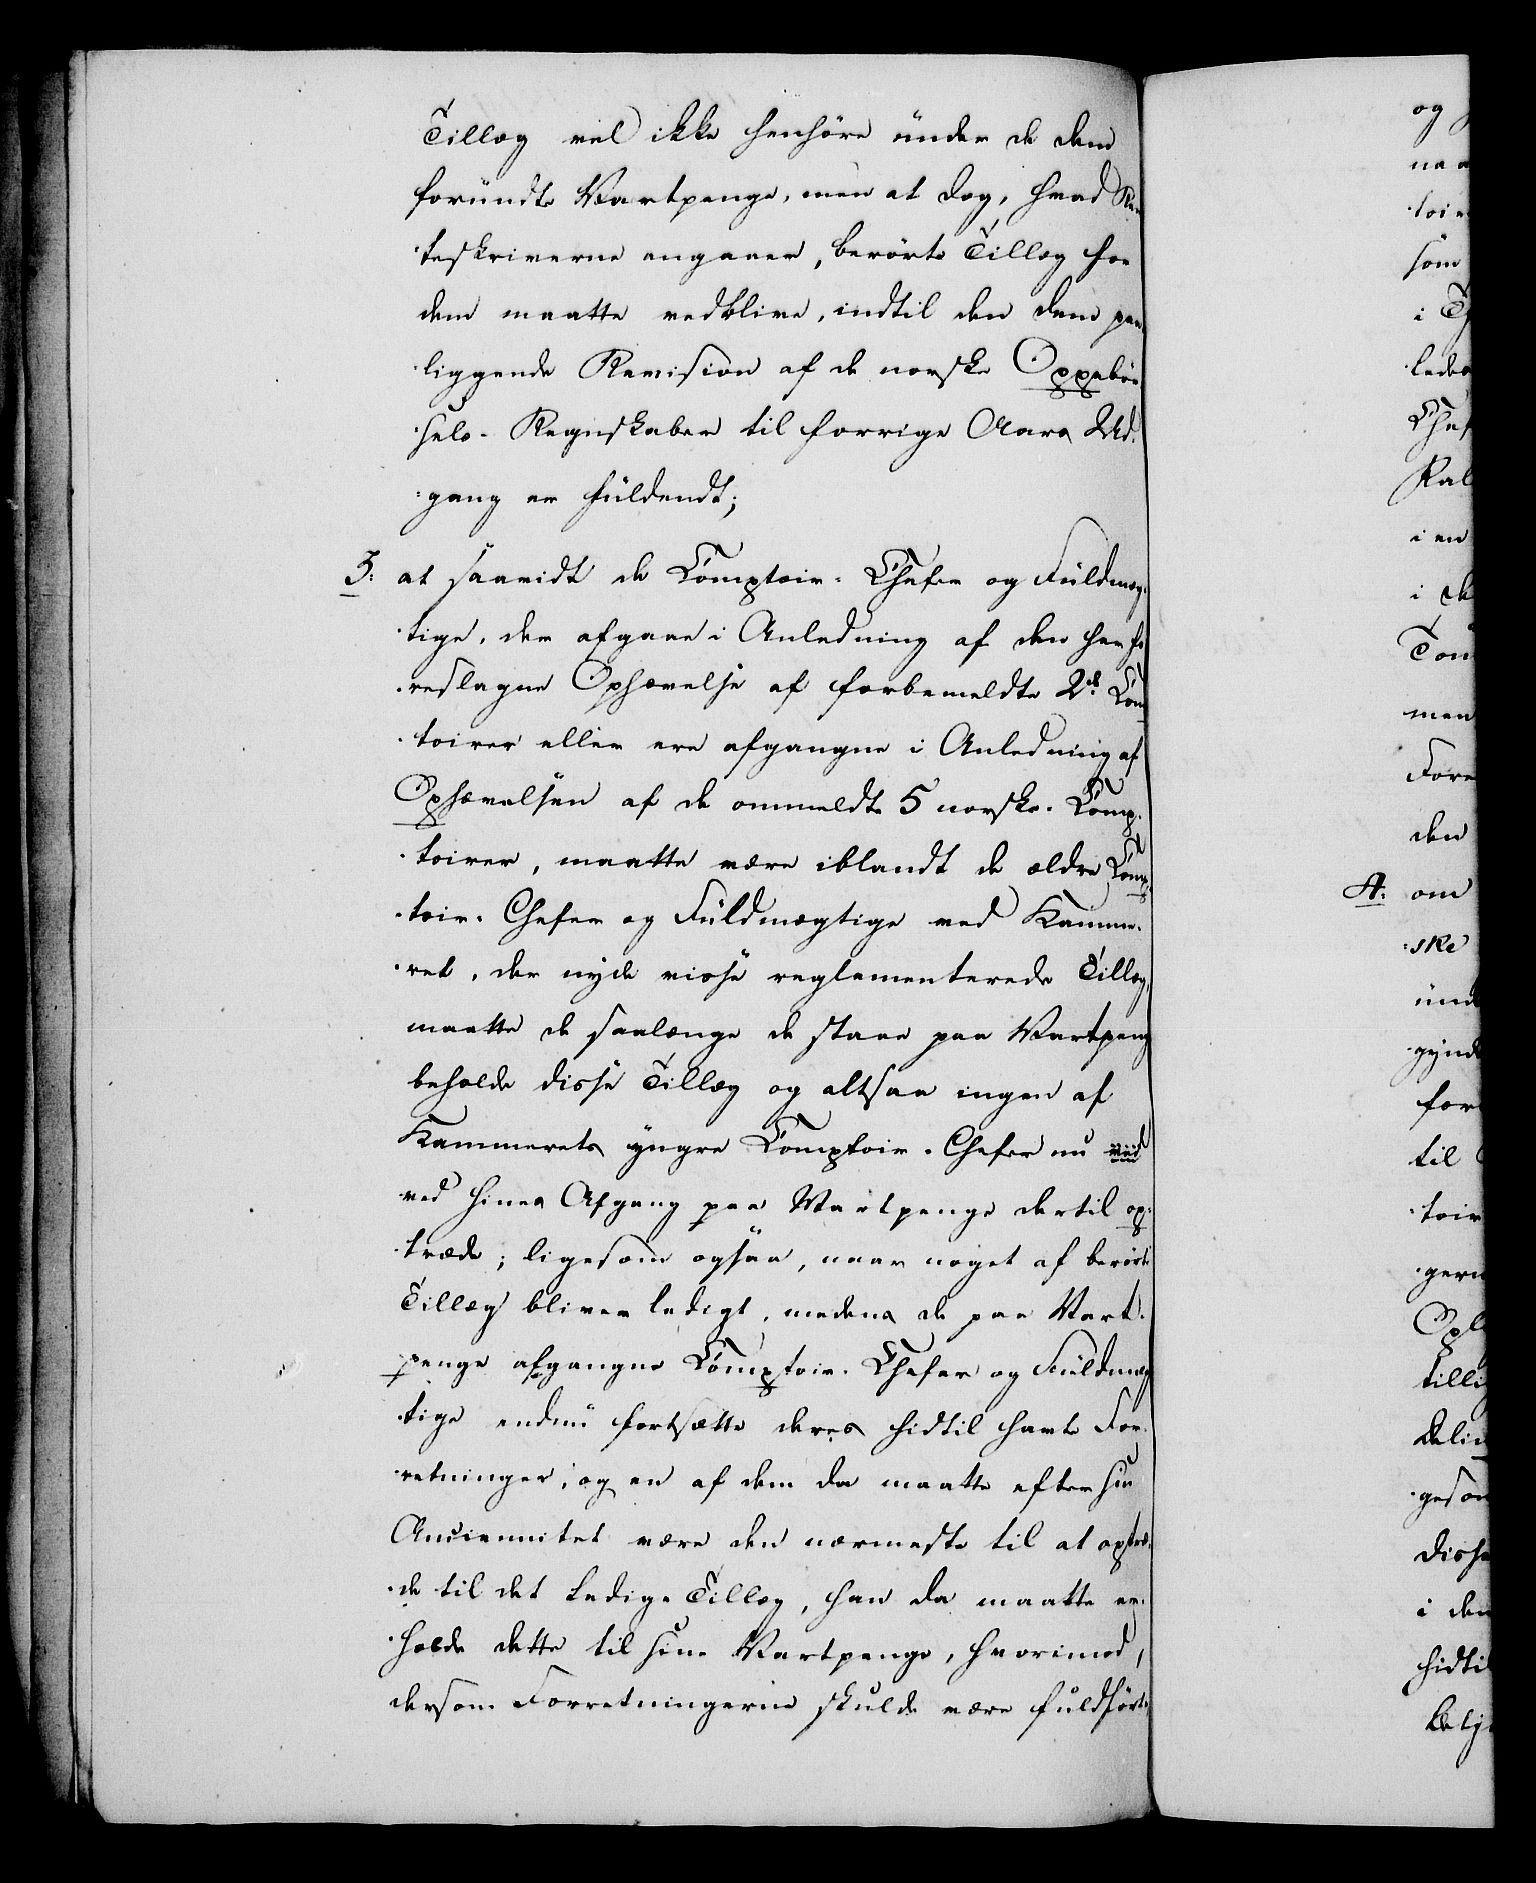 Tillæg vel ikke henhöre under de dem
forundte Vartpenge, men at dog, hvad Ren
teskriverne angaaer, berörte Tillæg for
dem maatte vedblive, indtil den dem paa
liggende Revision af de norske Oppebör
sels-Regnskaber til forrige Aars Ud-
gang er fuldendt;
3: at saavidt de Comptoir-Chefer og Fuldmæg-
tige, der afgaae i Anledning af den her fo
reslagne Ophævelse af forbemeldte 2de Com
toirer eller ere afgangne i Anledning af
Ophævelsen af de ommeldte 5 norske Comp-
toirer, maatte være iblandt de ældre Comp-
toir-Chefer og Fuldmægtige ved Kamme-
ret, der nyde visse reglementerede Tillæg,
maatte de saalænge de staae paa Vartpeng
beholde disse Tillæg og altsaa ingen af
Kammerets yngre Comptoir-Chefer nu
ved hines Afgang paa Vartpenge dertil op-
træde; ligesom ogsaa, naar noget af berört
Tillæg bliver ledigt, medens de paa Vart-
penge afgangne Comptoir-Chefer og Fuldmæg
tige endnu fortsætte deres hidtil havte For-
retninger, og en af dem da maatte efter sin
Anciennitet være den nærmeste til at optræ-
de til det ledige Tillæg, han da maatte er-
holde dette til sine Vartpenge, hvorimod,
dersom Forretningerne skulde være fuldförte
og
som
i
men
den
A: om
til
i den